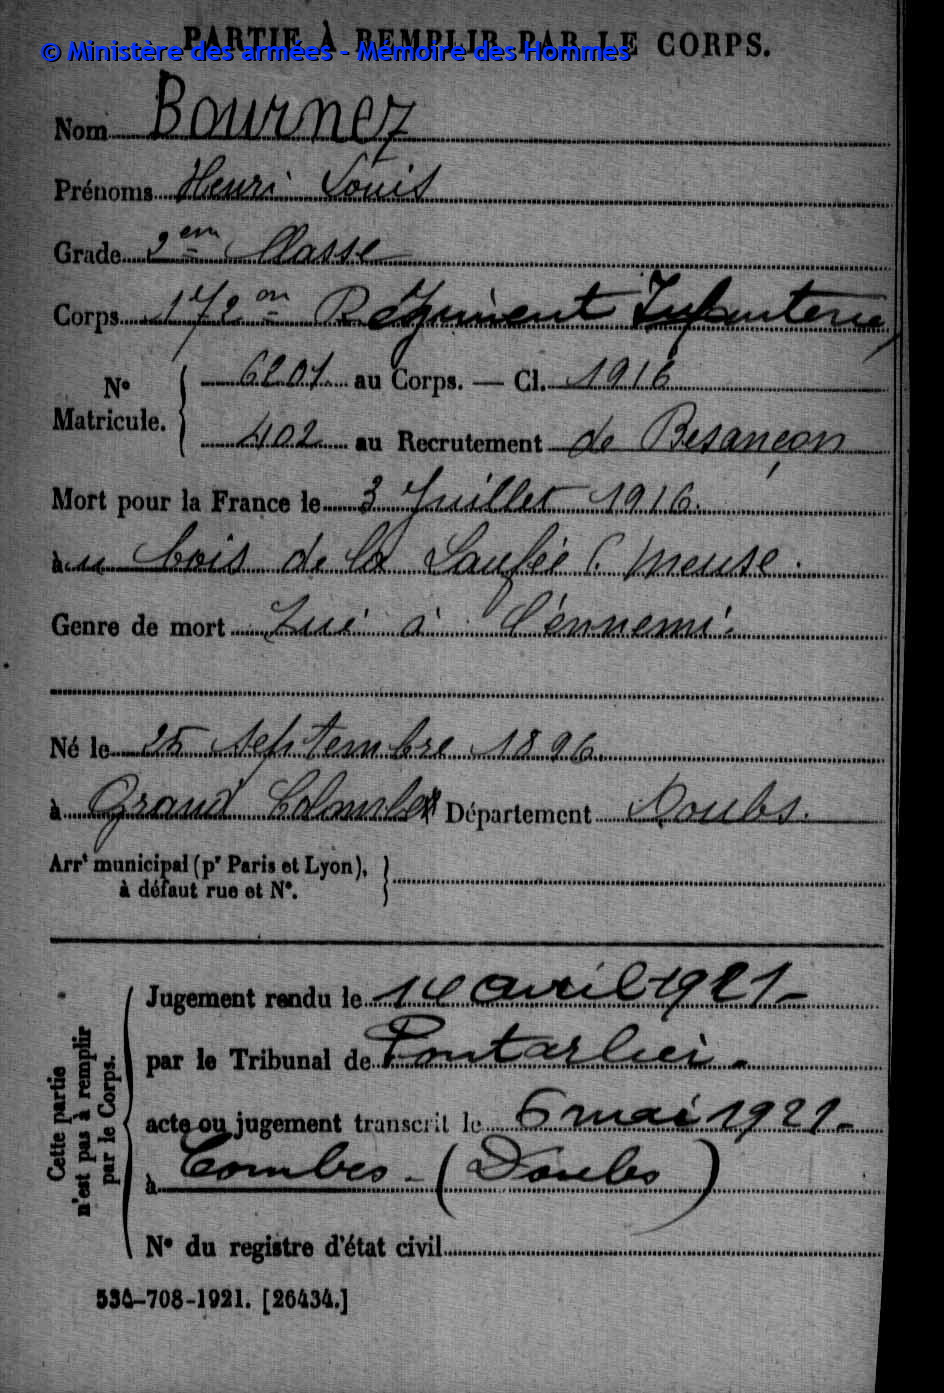 PARTIE À REMPLIR PAR LE CORPS.
© Ministère des armées - Mémoire des Hommes
Nom Bournez
Prénoms Henri Louis
Grade 2em Classe
Corps 172em Régiment Infanterie
N° Matricule. { 6201 au Corps. — Cl. 1916
402 au Recrutement de Besançon
Mort pour la France le 3 Juillet 1916.
au bois de la Meuse.
Genre de mort Tué à l'ennemi.
Né le 25 Septembre 1896.
à Grand Département Doubs.
Arrt municipal (pr Paris et Lyon),
à défaut rue et N°.
Cette partie
n'est pas à remplir
par le Corps.
Jugement rendu le 14 avril 1921-
par le Tribunal de Pontarlier.
acte ou jugement transcrit le 6 mai 1921-
à Combes - (Doubs)
N° du registre d'état civil
534-708-1921. [26434.]